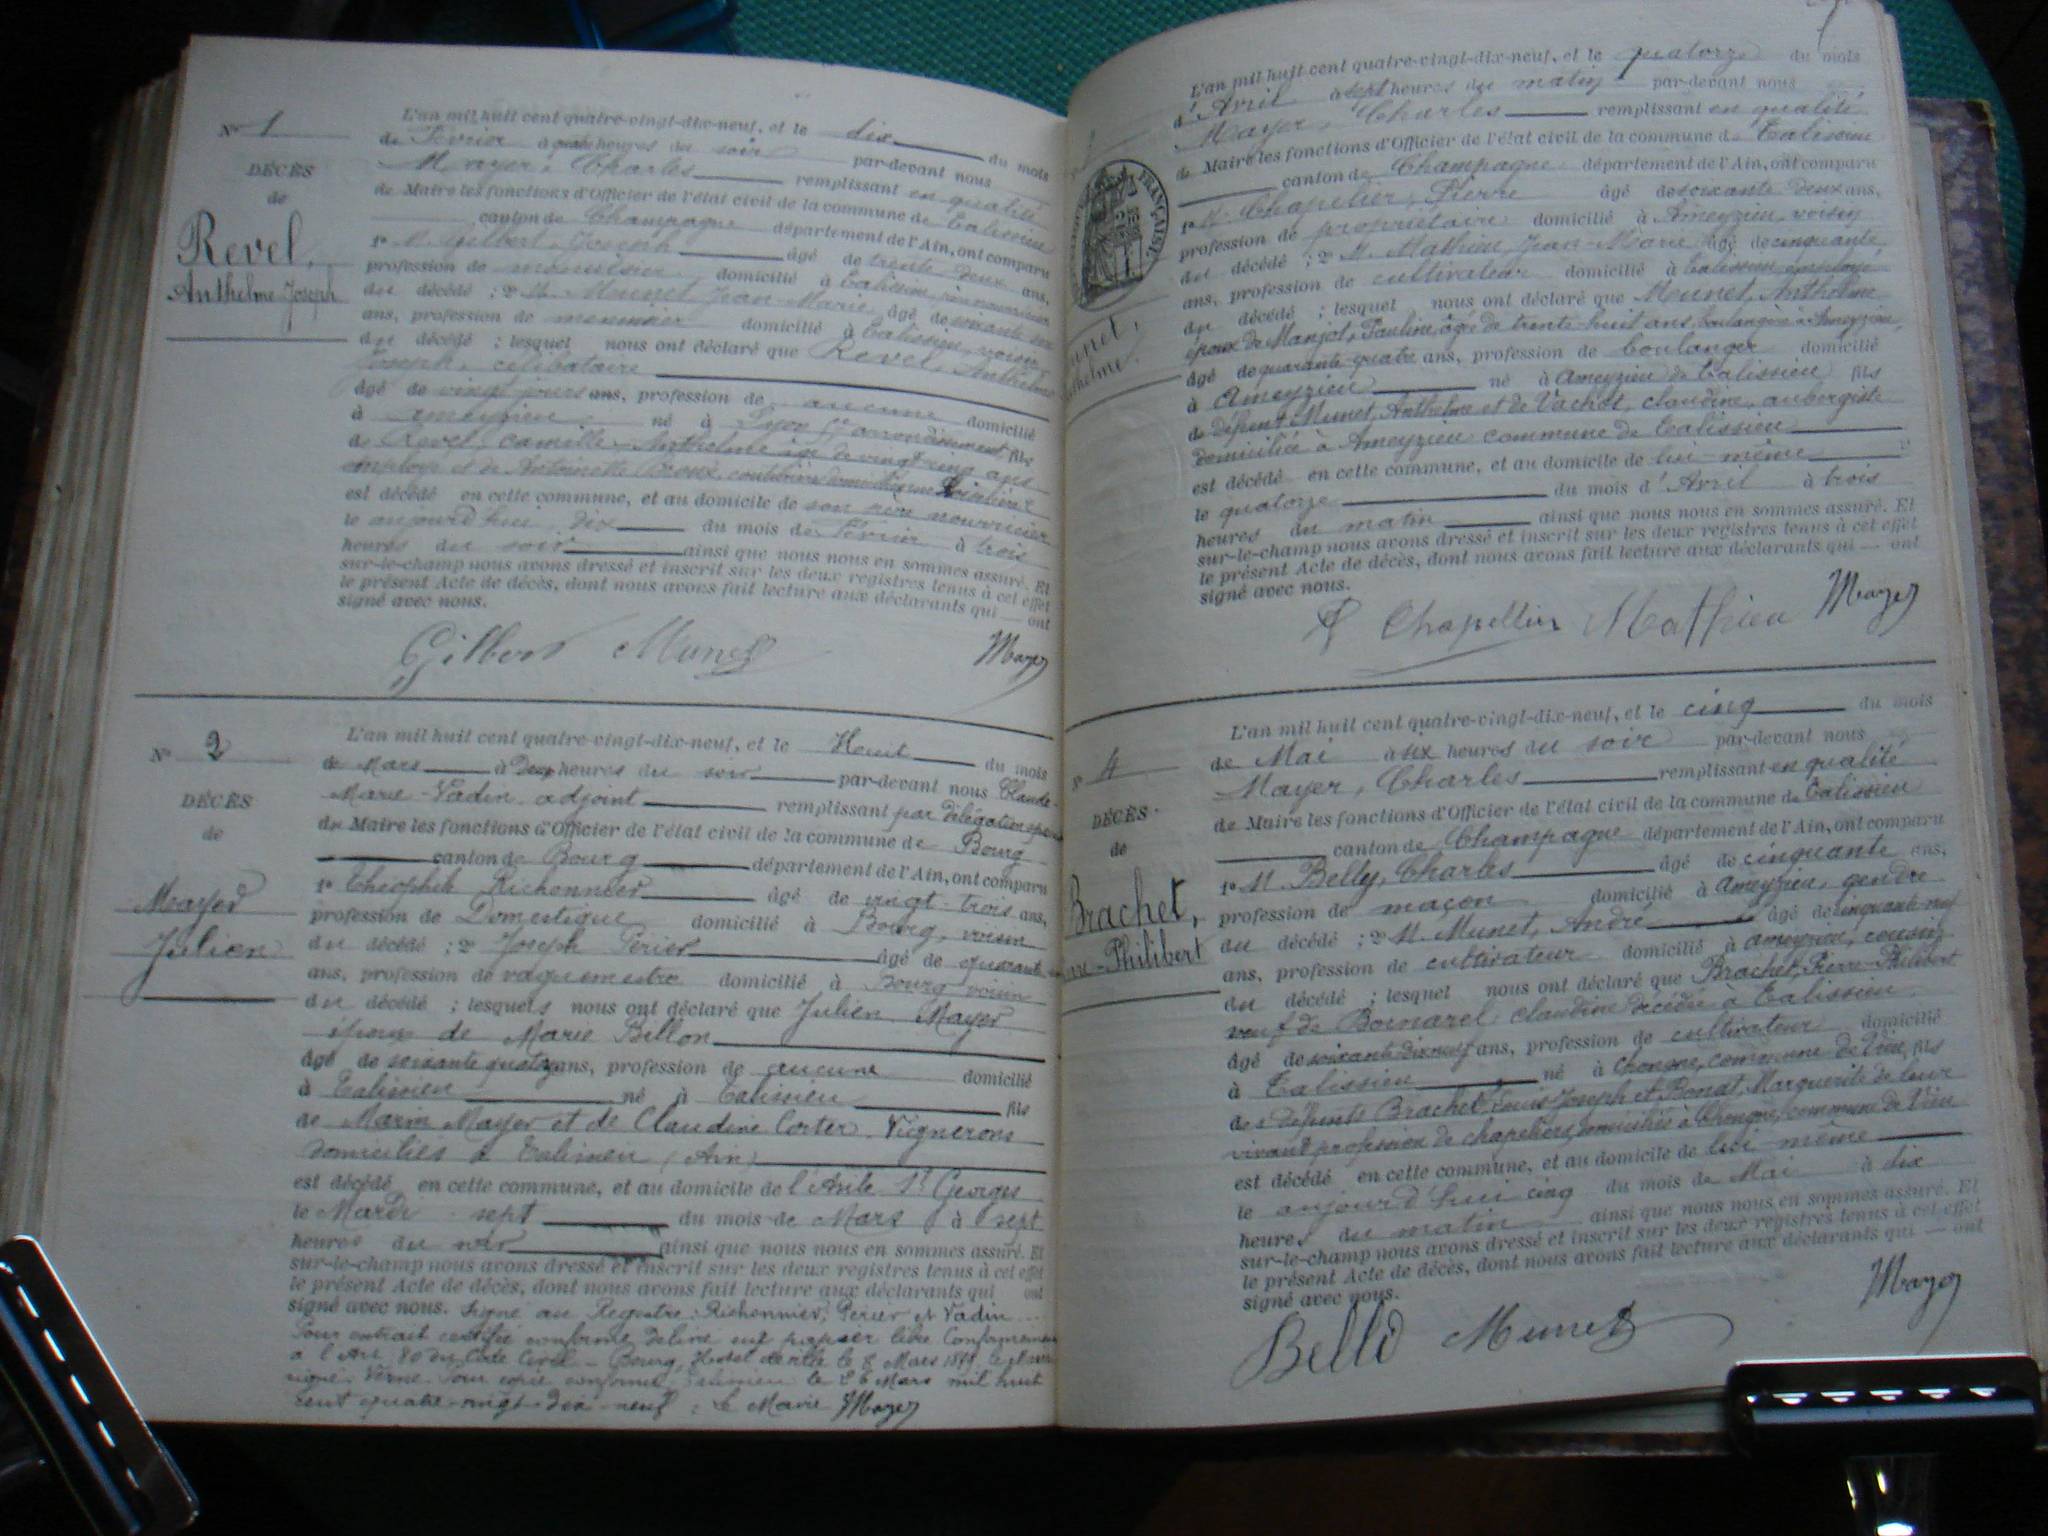 N° 1
DÉCÈS
de
Revel,
Anthelme Joseph
L'an mil huit cent quatre-vingt-dix-neuf, et le dix du mois
de Février à quatre heures du soir par-devant nous
Mayer, Charles remplissant en qualité
de Maire les fonctions d'Officier de l'état civil de la commune de Talissieu
canton de Champagne département de l'Ain, ont comparu
1° M. Gilbert, Joseph âgé de trente deux ans,
profession de menuisier domicilié à Talissieu, père nourricier
du décédé ; 2° M. Munet, Jean-Marie âgé de soixante six
ans, profession de menuisier domicilié à Talissieu, voisin
du décédé ; lesquel nous ont déclaré que Revel, Anthelme
Joseph, célibataire
âgé de vingt jours ans, profession de aucune domicilié
à Ameyzieu né à Lyon arrondissement fils
de Revel, Camille Anthelme âgé de vingt-cinq ans
employé et de Antoinette couturière
est décédé en cette commune, et au domicile de son père nourricier
le aujourd'hui dix du mois de Février à trois
heures du soir ainsi que nous nous en sommes assuré. Et
sur-le-champ nous avons dressé et inscrit sur les deux registres tenus à cet effet
le présent Acte de décès, dont nous avons fait lecture aux déclarants qui — ont
signé avec nous.
Gilbert Munet Mayer
N° 2
DÉCÈS
de
Mayer
Julien
L'an mil huit cent quatre-vingt-dix-neuf, et le Huit du mois
de Mars à Deux heures du soir par-devant nous Claude-
Marie Vadin adjoint remplissant par délégation
du Maire les fonctions d'Officier de l'état civil de la commune de Bourg
canton de Bourg département de l'Ain, ont comparu
1° Théophile Richonnier âgé de vingt-trois ans,
profession de Domestique domicilié à Bourg, voisin
du décédé ; 2° Joseph Perier âgé de quarante
ans, profession de vaguemestre domicilié à Bourg voisin
du décédé ; lesquels nous ont déclaré que Julien Mayer
époux de Marie Billon
âgé de soixante quatorze ans, profession de aucune domicilié
à Talissieu né à Talissieu fils
de Marin Mayer et de Claudine Corter. Vignerons
domiciliés à Talissieu (Ain)
est décédé en cette commune, et au domicile de l'Asile St Georges
le Mardi sept du mois de Mars à sept
heures du soir ainsi que nous nous en sommes assuré. Et
sur-le-champ nous avons dressé et inscrit sur les deux registres tenus à cet effet
le présent Acte de décès, dont nous avons fait lecture aux déclarants qui ont
signé avec nous. Signé au Registre : Richonnier, Perier et Vadin
Pour extrait certifié conforme délivré sur papier libre Conformément
à l'Art. 80 du Code Civil - Bourg, Hotel de ville le 8 Mars 1899, le Maire
signé Verne. Pour copie conforme Talissieu le 26 Mars mil huit
cent quatre-vingt-dix-neuf : Le Maire Mayer
FRANÇAISE
Munet,
Anthelme
L'an mil huit cent quatre-vingt-dix-neuf, et le quatorze du mois
d'Avril à sept heures du matin par-devant nous
Mayer, Charles remplissant en qualité
de Maire les fonctions d'Officier de l'état civil de la commune de Talissieu
canton de Champagne département de l'Ain, ont comparu
1° M. Chapelier, Pierre âgé de soixante deux ans,
profession de propriétaire domicilié à Ameyzieu, voisin
du décédé ; 2° M. Mathieu, Jean-Marie âgé de cinquante
ans, profession de cultivateur domicilié à Talissieu employé
du décédé ; lesquel nous ont déclaré que Meunet, Anthelme
époux de Manjot, Pauline, âgée de trente-huit ans, boulangère à Ameyzieu,
âgé de quarante-quatre ans, profession de boulanger domicilié
à Ameyzieu né à Ameyzieu de Talissieu fils
de défunt Munet, Anthelme et de Vachot, Claudine, aubergiste
domiciliée à Ameyzieu commune de Talissieu
est décédé en cette commune, et au domicile de lui-même
le quatorze du mois d'Avril à trois
heures du matin ainsi que nous nous en sommes assuré. Et
sur-le-champ nous avons dressé et inscrit sur les deux registres tenus à cet effet
le présent Acte de décès, dont nous avons fait lecture aux déclarants qui — ont
signé avec nous.
Chapellier Mathieu Mayer
N° 4
DÉCÈS
de
Brachet,
Pierre-Philibert
L'an mil huit cent quatre-vingt-dix-neuf, et le cinq du mois
de Mai à six heures du soir par-devant nous
Mayer, Charles remplissant en qualité
de Maire les fonctions d'Officier de l'état civil de la commune de Talissieu
canton de Champagne département de l'Ain, ont comparu
1° M. Belly, Charles âgé de cinquante ans,
profession de maçon domicilié à Ameyzieu, gendre
du décédé ; 2° M. Munet, André âgé de cinquante-neuf
ans, profession de cultivateur domicilié à Ameyzieu, cousin
du décédé ; lesquel nous ont déclaré que Brachet, Pierre-Philibert
veuf de Bornarel, Claudine décédée à Talissieu
âgé de soixante-dix-neuf ans, profession de cultivateur domicilié
à Talissieu né à Chongne, commune de Vieu, fils
des défunts Brachet, Louis Joseph et Bonat, Marguerite de leur
vivant profession de chapeliers, domiciliés à Chongne, commune de Vieu
est décédé en cette commune, et au domicile de lui même
le aujourd'hui cinq du mois de Mai à dix
heures du matin ainsi que nous nous en sommes assuré. Et
sur-le-champ nous avons dressé et inscrit sur les deux registres tenus à cet effet
le présent Acte de décès, dont nous avons fait lecture aux déclarants qui — ont
signé avec nous.
Belli Munet Mayer